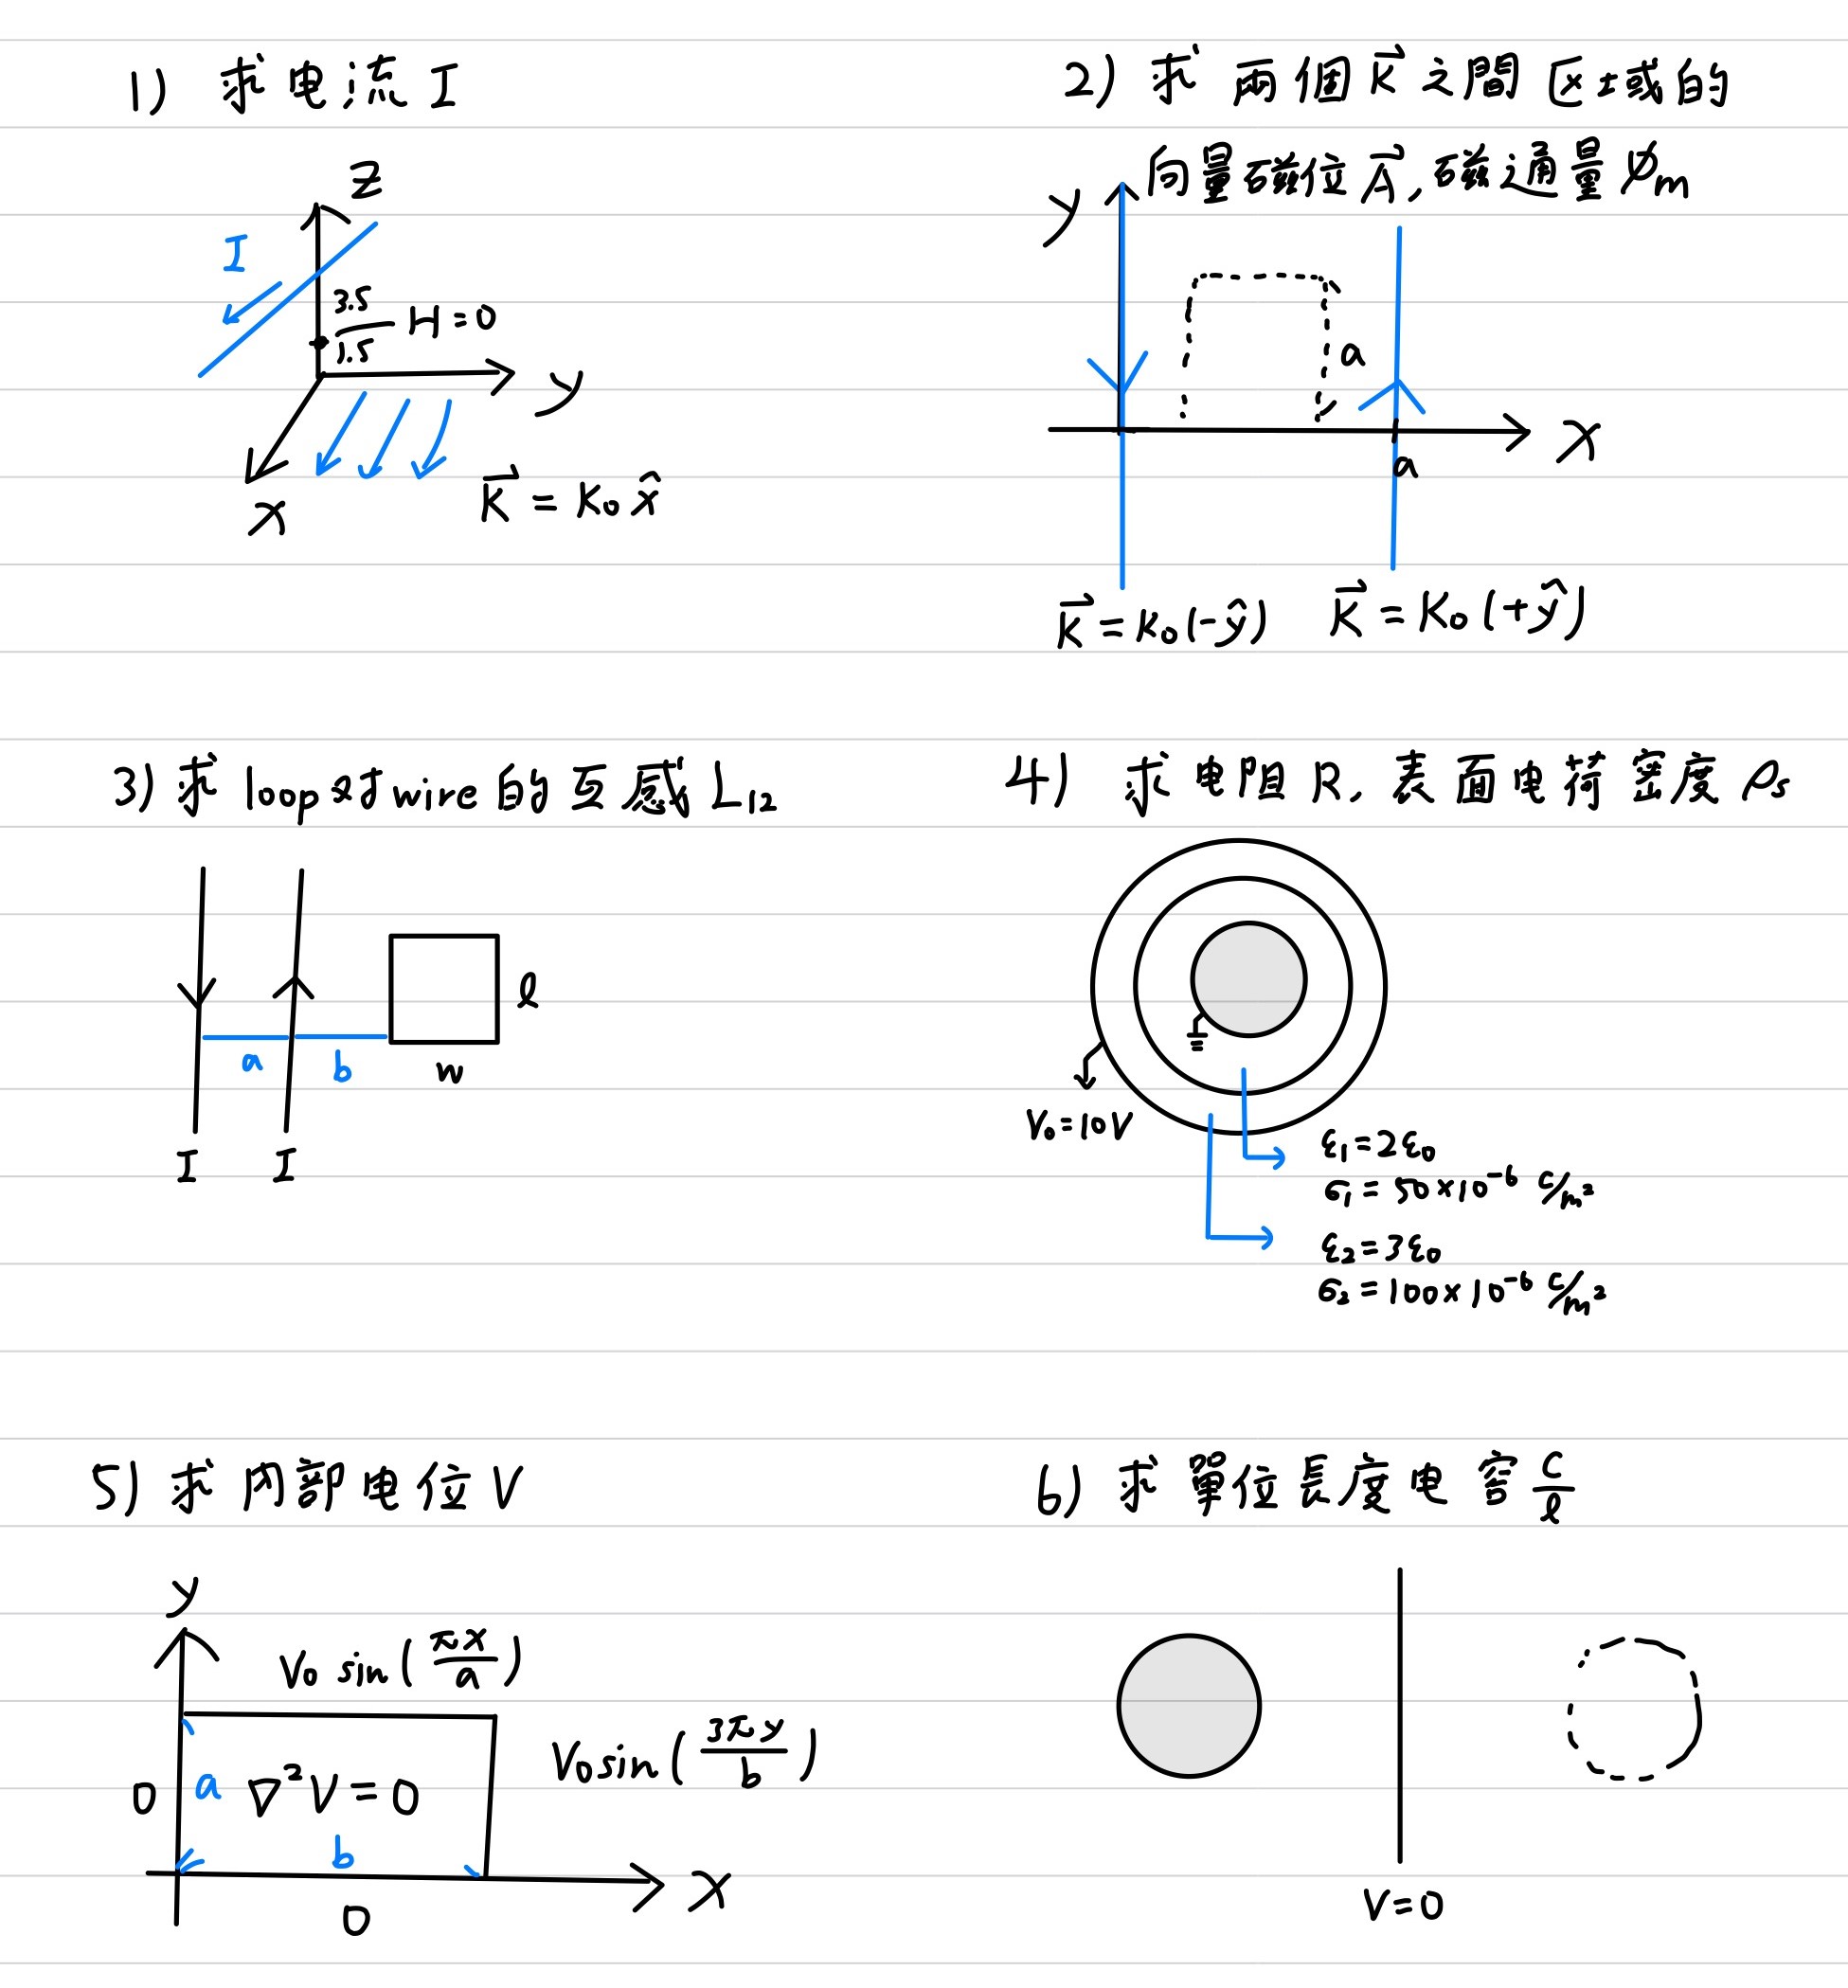 1) 求电流 I
z
I
3.5
1.5
H=0
y
x
K⃗ = K₀ x̂
2) 求兩個 K⃗ 之間区域的
向量磁位 A⃗, 磁通量 Ψm
y
a
x
a
K⃗ = K₀(-ŷ)
K⃗ = K₀(+ŷ)
3) 求 loop 对 wire 的互感 L₁₂
l
a
b
w
I
I
4) 求电阻R, 表面电荷密度 ρs
V₀=10V
ε₁=2ε₀
σ₁=50×10⁻⁶ c/m²
ε₂=3ε₀
σ₂=100×10⁻⁶ c/m²
5) 求内部电位V
y
V₀ sin(πx/a)
V₀ sin(3πy/b)
0
a
∇²V=0
b
x
0
6) 求單位長度电容 c/l
V=0